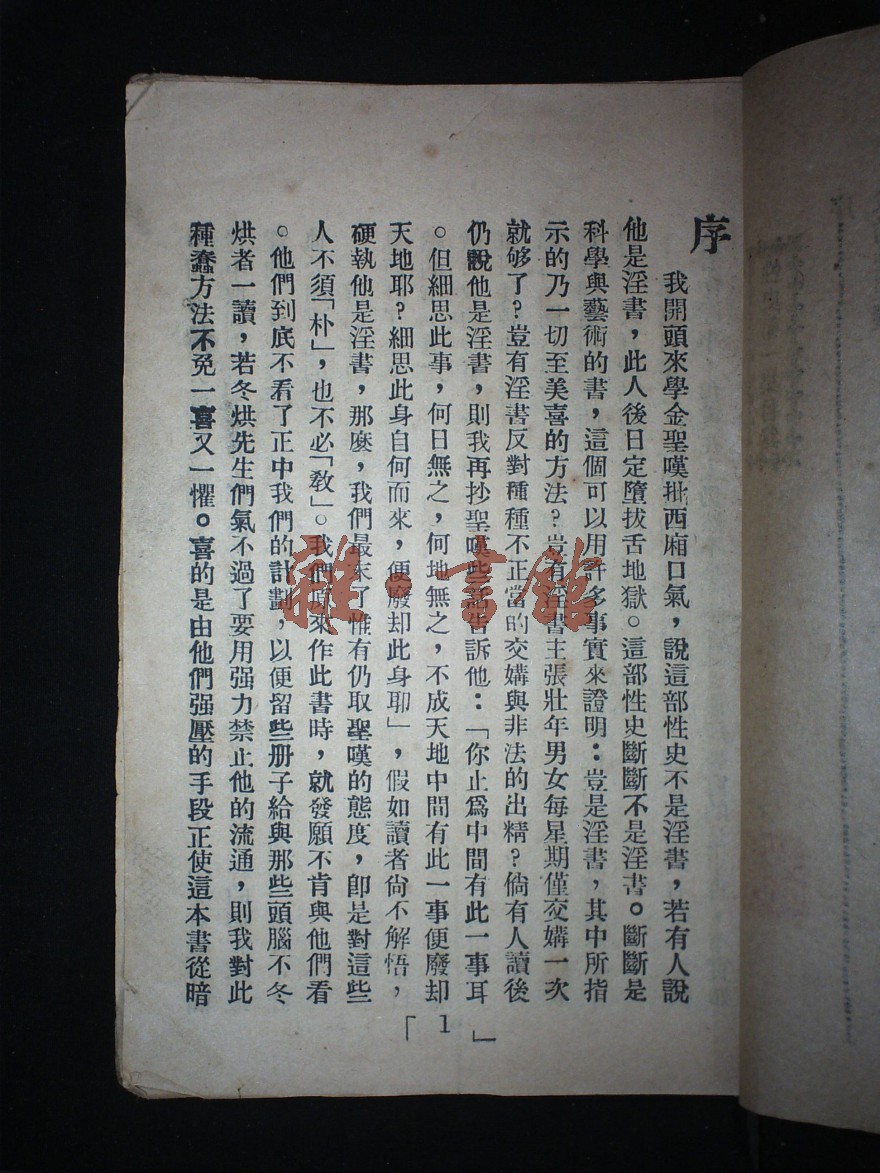 序
我開頭來學金聖嘆批西廂口氣，說這部性史不是淫書，若有人說
他是淫書，此人後日定墮拔舌地獄。這部性史斷斷不是淫書。斷斷是
科學與藝術的書，這個可以用許多事實來證明：豈是淫書，其中所指
示的乃一切至美喜的方法？豈有淫書主張壯年男女每星期僅交媾一次
就够了？豈有淫書反對種種不正當的交媾與非法的出精？倘有人讀後
仍說他是淫書，則我再抄聖嘆些話告訴他：「你止爲中間有此一事耳
。但細思此事，何日無之，何地無之，不成天地中間有此一事便廢却
天地耶？細思此身自何而來，便廢却此身耶」，假如讀者尙不解悟，
硬執他是淫書，那麼，我們最末了惟有仍取聖嘆的態度，卽是對這些
人不須「朴」，也不必「敎」。我們原來作此書時，就發願不肯與他們看
。他們到底不看了正中我們的計劃，以便留些册子給與那些頭腦不冬
烘者一讀，若冬烘先生們氣不過了要用强力禁止他的流通，則我對此
種蠢方法不免一喜又一懼。喜的是由他們强壓的手段正使這本書從暗
「1」
雜·書館